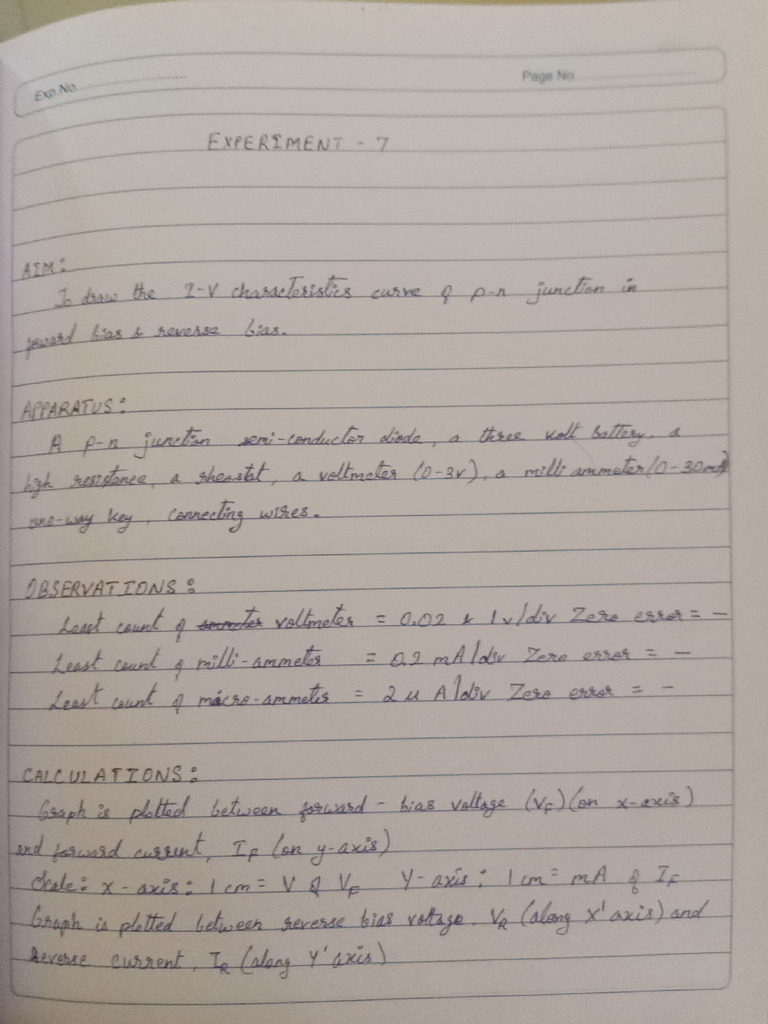 Exp.No.
Page No.
EXPERIMENT - 7
AIM:
To draw the I-V characteristics curve of p-n junction in
foward bias & reverse bias.
APPARATUS:
A p-n junction semi-conductor diode, a three volt battery, a
high resistance, a rheostat, a voltmeter (0-3v), a milli ammeter (0-30mA)
one-way key, connecting wires.
OBSERVATIONS:
Least count of ammeter voltmeter = 0.02 & 1v/div Zero error = -
Least count of milli-ammeter = 0.2 mA/div Zero error = -
Least count of micro-ammeter = 2 u A/div Zero error = -
CALCULATIONS:
Graph is plotted between forward - bias voltage (VF) (on x-axis)
and forward current, IF (on y-axis)
Scale: x-axis: 1 cm = V of VF Y-axis: 1 cm = mA of IF
Graph is plotted between reverse bias voltage, VR (along X' axis) and
Reverse current, IR (along Y' axis)